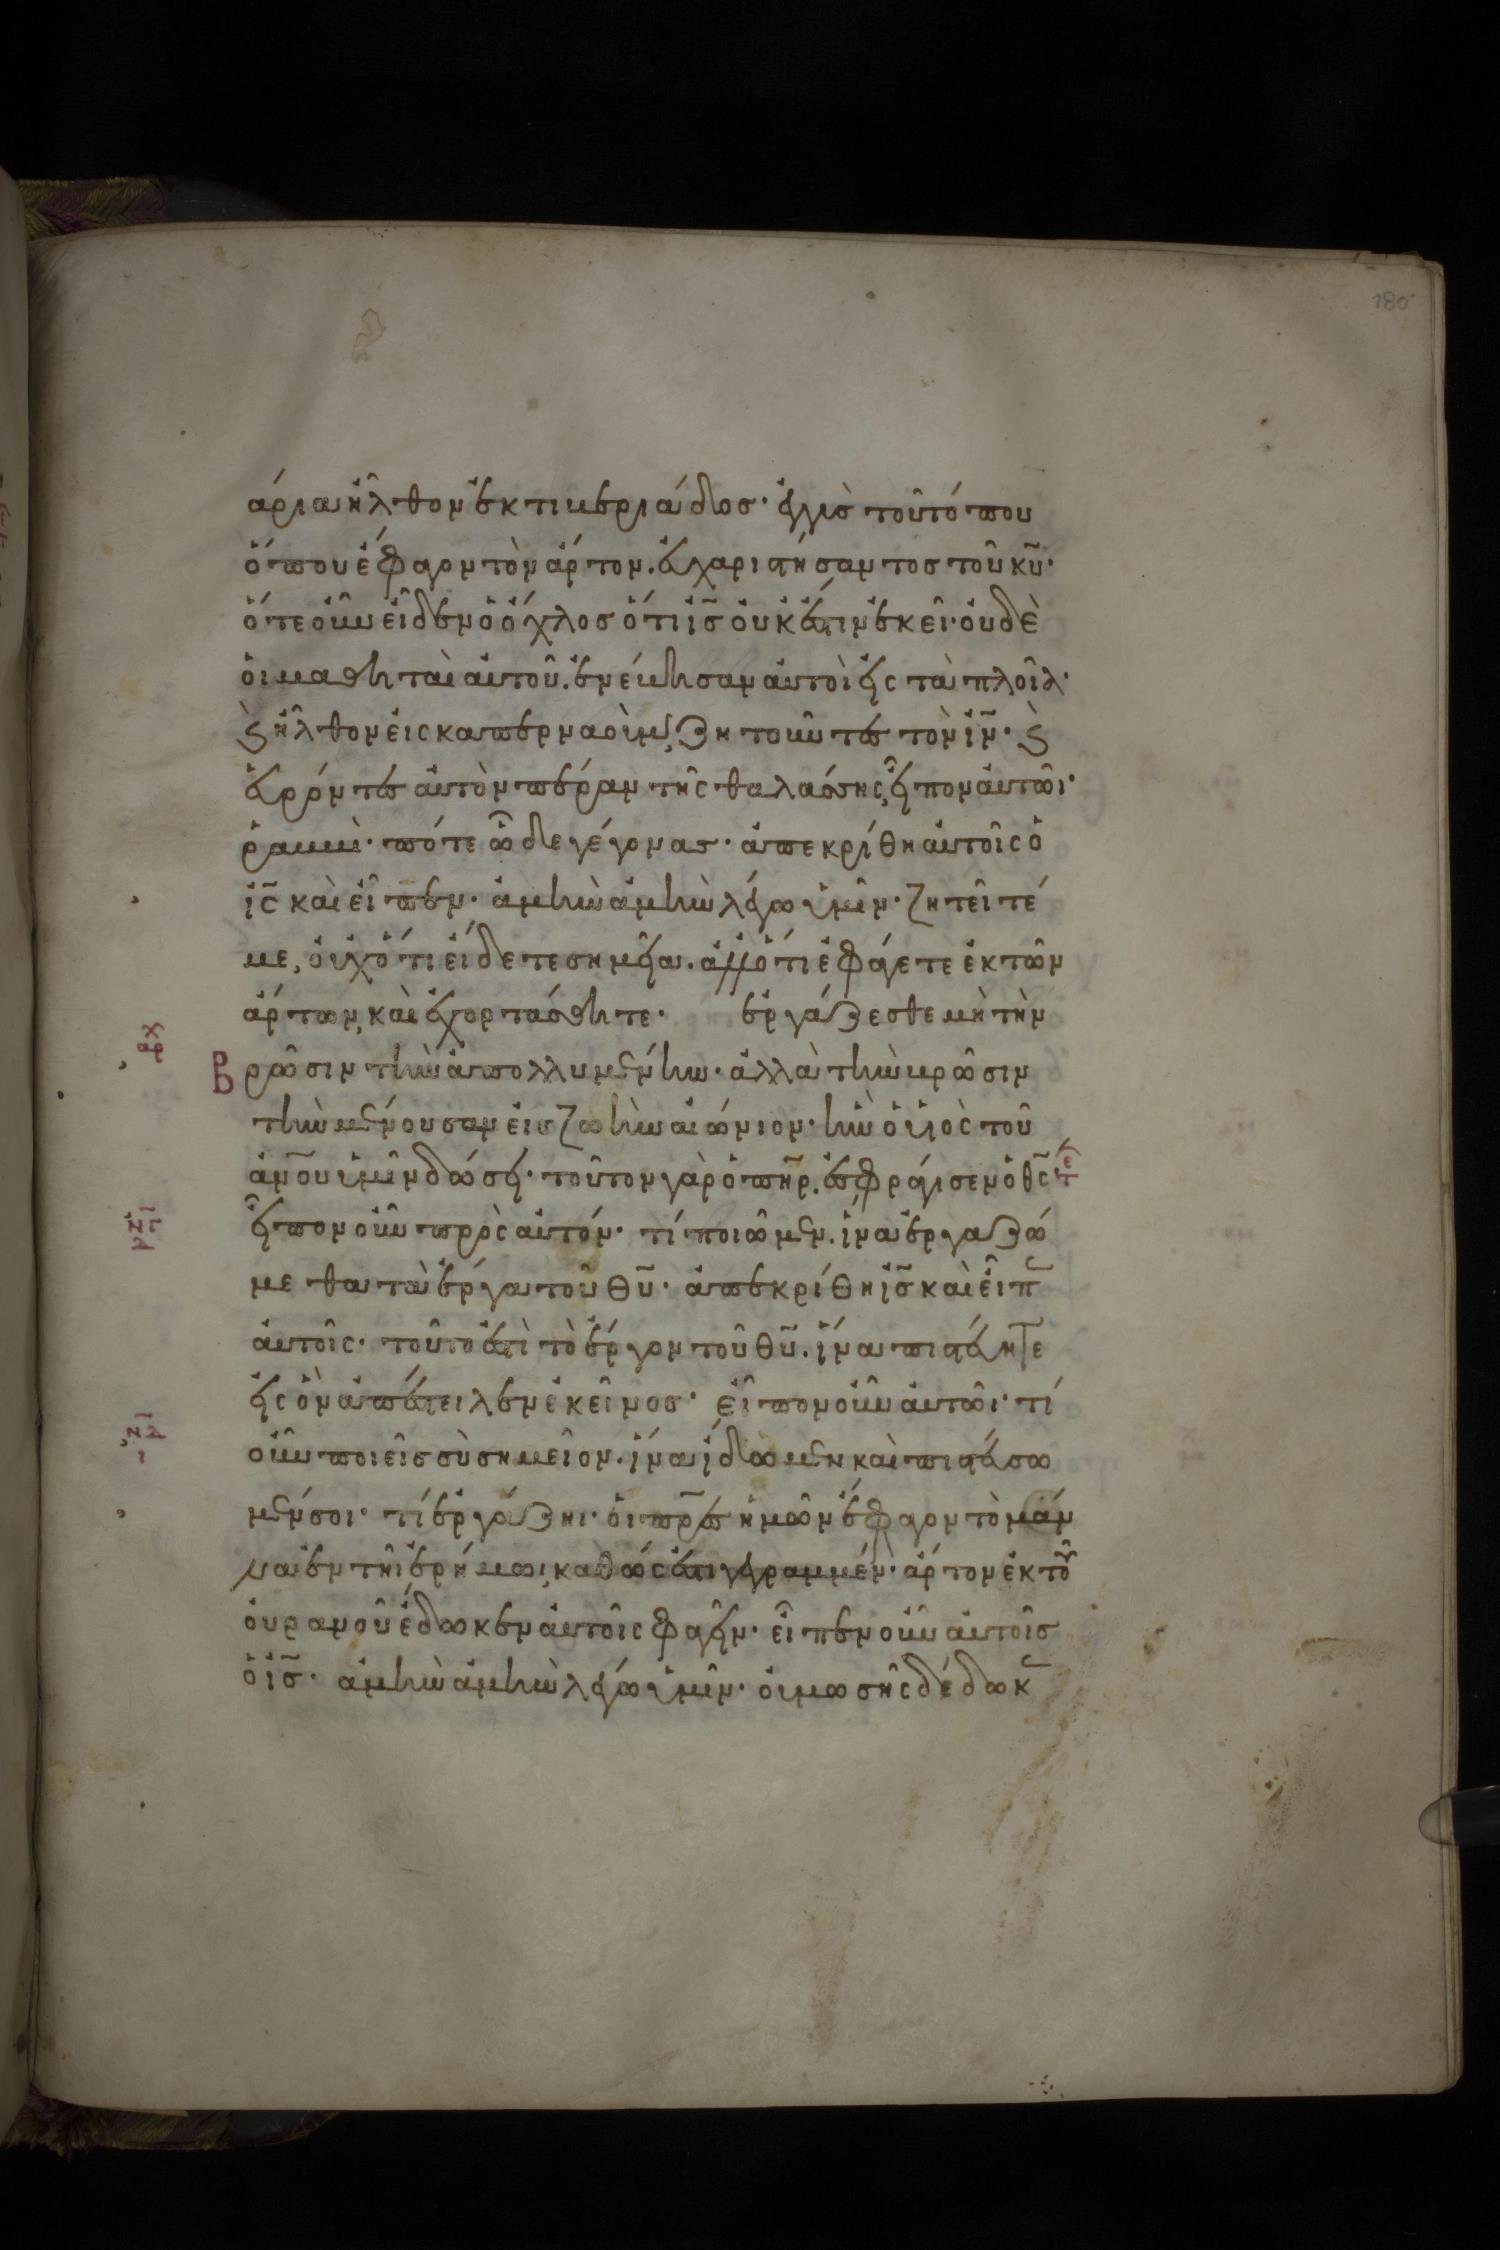 180
άρια ἦλθον ἐκ τιβεριάδος· ἐγγὺσ τοῦ τόπου
ὅπου ἔφαγον τὸν ἄρτον. εὐχαριστήσαντος τοῦ κ̅υ·
ὅτε οὖν εἶδεν ὁ ὄχλος ὅτι ι̅σ οὐκ ἔστιν ἐκεῖ· οὐδὲ
οἱ μαθηταὶ αὐτοῦ. ἐνέβησαν αὐτοὶ εἰς τὰ πλοῖα·
ϗ ἦλθον εἰς καπερναοὺμ, ζητοῦντες τὸν ι̅ν· ϗ
εὑρόντες αὐτὸν πέραν τῆς θαλάσσης, εἶπον αὐτῶι·
ῥαββὶ· πότε ὧδε γέγονας· ἀπεκρίθη αὐτοῖς ὁ
ι̅ς καὶ εἶπεν· ἀμὴν ἀμὴν λέγω ὑμῖν· ζητεῖτέ
με, οὐχ ὅτι εἴδετε σημεῖα. ἀλλ' ὅτι ἐφάγετε ἐκ τῶν
ἄρτων, καὶ ἐχορτάσθητε· ἐργάζεσθε μὴ τὴν
βρῶσιν τὴν ἀπολλυμένην· ἀλλὰ τὴν βρῶσιν
τὴν μένουσαν εἰς ζωὴν αἰώνιον· ἣν ὁ υἱὸς τοῦ
ἀν̅ου ὑμῖν δώσει· τοῦτον γὰρ ὁ π̅η̅ρ. ἐσφράγισεν ὁ θ̅ς·
εἶπον οὖν πρὸς αὐτόν· τί ποιῶμεν. ἵνα ἐργαζώ
μεθα τὰ ἔργα τοῦ θ̅υ· ἀπεκρίθη ι̅σ καὶ εἶπ
αὐτοῖς· τοῦτό ἐστὶ τὸ ἔργον τοῦ θ̅υ. ἵνα πιστεύητε
εἰς ὃν ἀπέστειλεν ἐκεῖνος· εἶπον οὖν αὐτῶι· τί
οὖν ποιεῖς σὺ σημεῖον. ἵνα ἴδωμεν καὶ πιστεύσω
μέν σοι· τί ἐργάζηι· οἱ π̅ρ̅ες ἡμῶν ἔφαγον τὸ μάν
να ἐν τῆι ἐρήμωι, καθώς ἐστι γεγραμμέν· ἄρτον ἐκ τοῦ
οὐρανοῦ ἔδωκεν αὐτοῖς φαγεῖν· εἶπεν οὖν αὐτοῖς
ὁ ι̅σ· ἀμὴν ἀμὴν λέγω ὑμῖν· οὐ μωσῆς δέδωκ